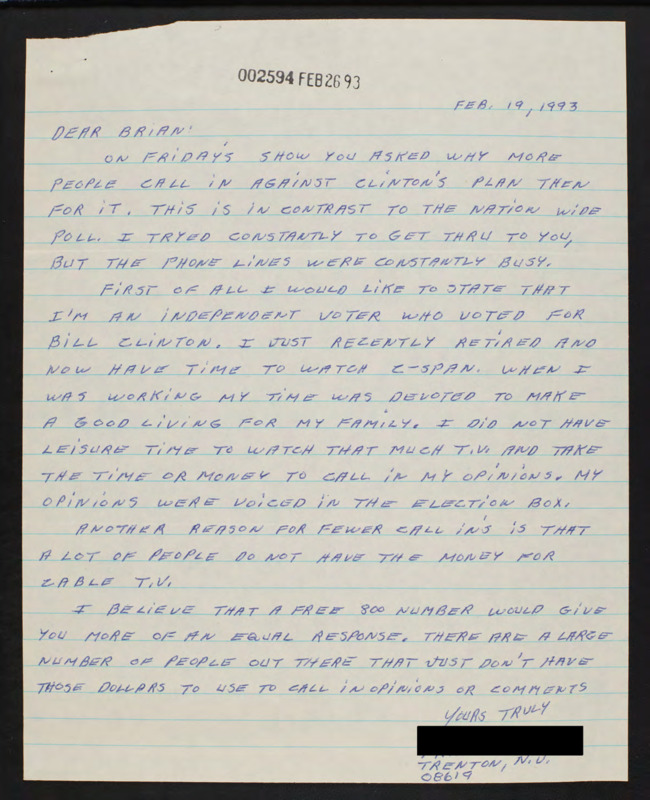 002594 FEB 26 93
FEB. 19, 1993
DEAR BRIAN:
ON FRIDAY'S SHOW YOU ASKED WHY MORE
PEOPLE CALL IN AGAINST CLINTON'S PLAN THEN
FOR IT. THIS IS IN CONTRAST TO THE NATION WIDE
POLL. I TRYED CONSTANTLY TO GET THRU TO YOU,
BUT THE PHONE LINES WERE CONSTANTLY BUSY.
FIRST OF ALL I WOULD LIKE TO STATE THAT
I'M AN INDEPENDENT VOTER WHO VOTED FOR
BILL CLINTON. I JUST RECENTLY RETIRED AND
NOW HAVE TIME TO WATCH C-SPAN. WHEN I
WAS WORKING MY TIME WAS DEVOTED TO MAKE
A GOOD LIVING FOR MY FAMILY. I DID NOT HAVE
LEISURE TIME TO WATCH THAT MUCH T.V. AND TAKE
THE TIME OR MONEY TO CALL IN MY OPINIONS. MY
OPINIONS WERE VOICED IN THE ELECTION BOX.
ANOTHER REASON FOR FEWER CALL IN'S IS THAT
A LOT OF PEOPLE DO NOT HAVE THE MONEY FOR
CABLE T.V.
I BELIEVE THAT A FREE 800 NUMBER WOULD GIVE
YOU MORE OF AN EQUAL RESPONSE. THERE ARE A LARGE
NUMBER OF PEOPLE OUT THERE THAT JUST DON'T HAVE
THOSE DOLLARS TO USE TO CALL IN OPINIONS OR COMMENTS
YOURS TRULY
TRENTON, N.J.
08619